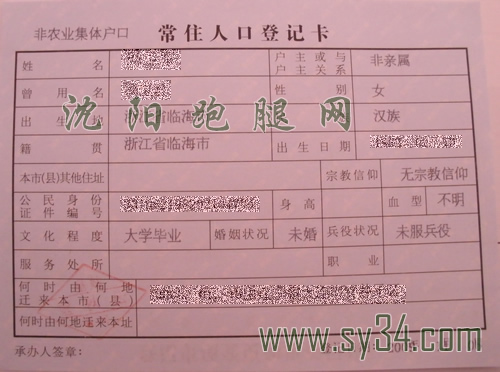 非农业集体户口 常住人口登记卡
姓名 户主或与户主关系 非亲属
曾用名 性别 女
出生地 浙江省临海市 民族 汉族
籍贯 浙江省临海市 出生日期
本市(县)其他住址 宗教信仰 无宗教信仰
公民身份证件编号 身高 血型 不明
文化程度 大学毕业 婚姻状况 未婚 兵役状况 未服兵役
服务处所 职业
何时由何地迁来本市(县)
何时由何地迁来本址
承办人签章:
沈阳跑腿网
www.sy34.com